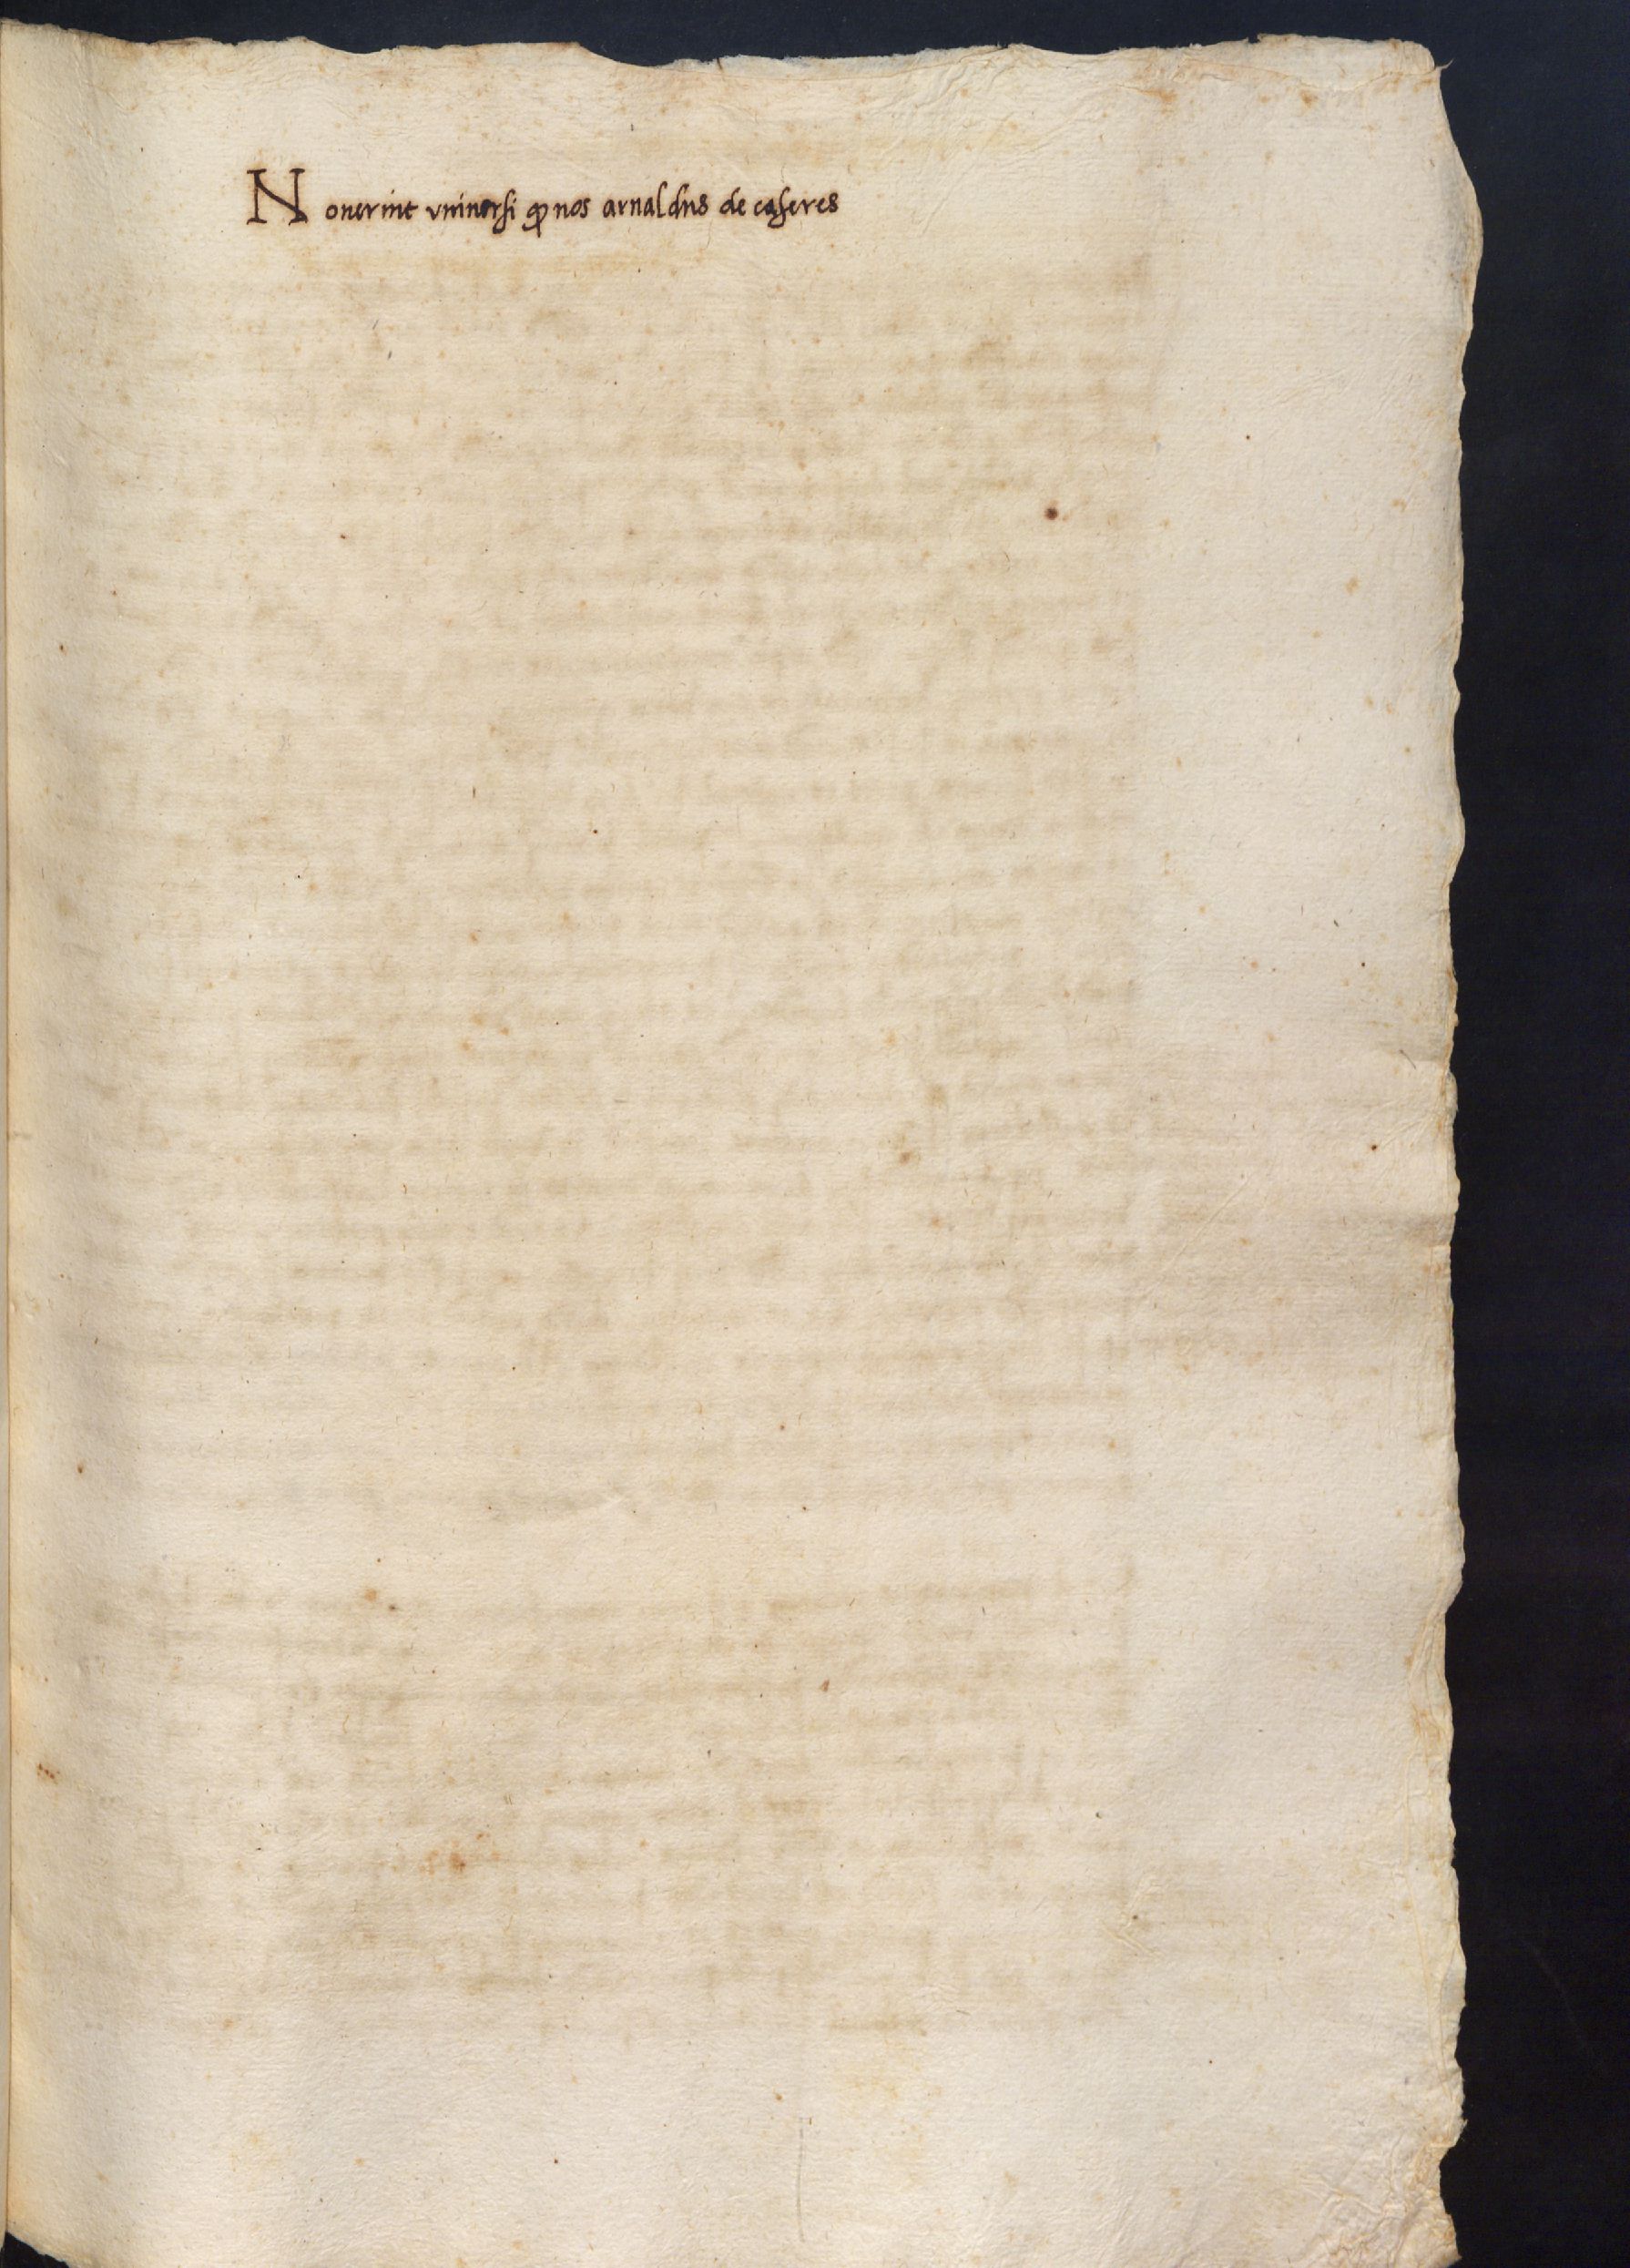 Nouerint vniuersi ꝙ nos arnaldus de caseres